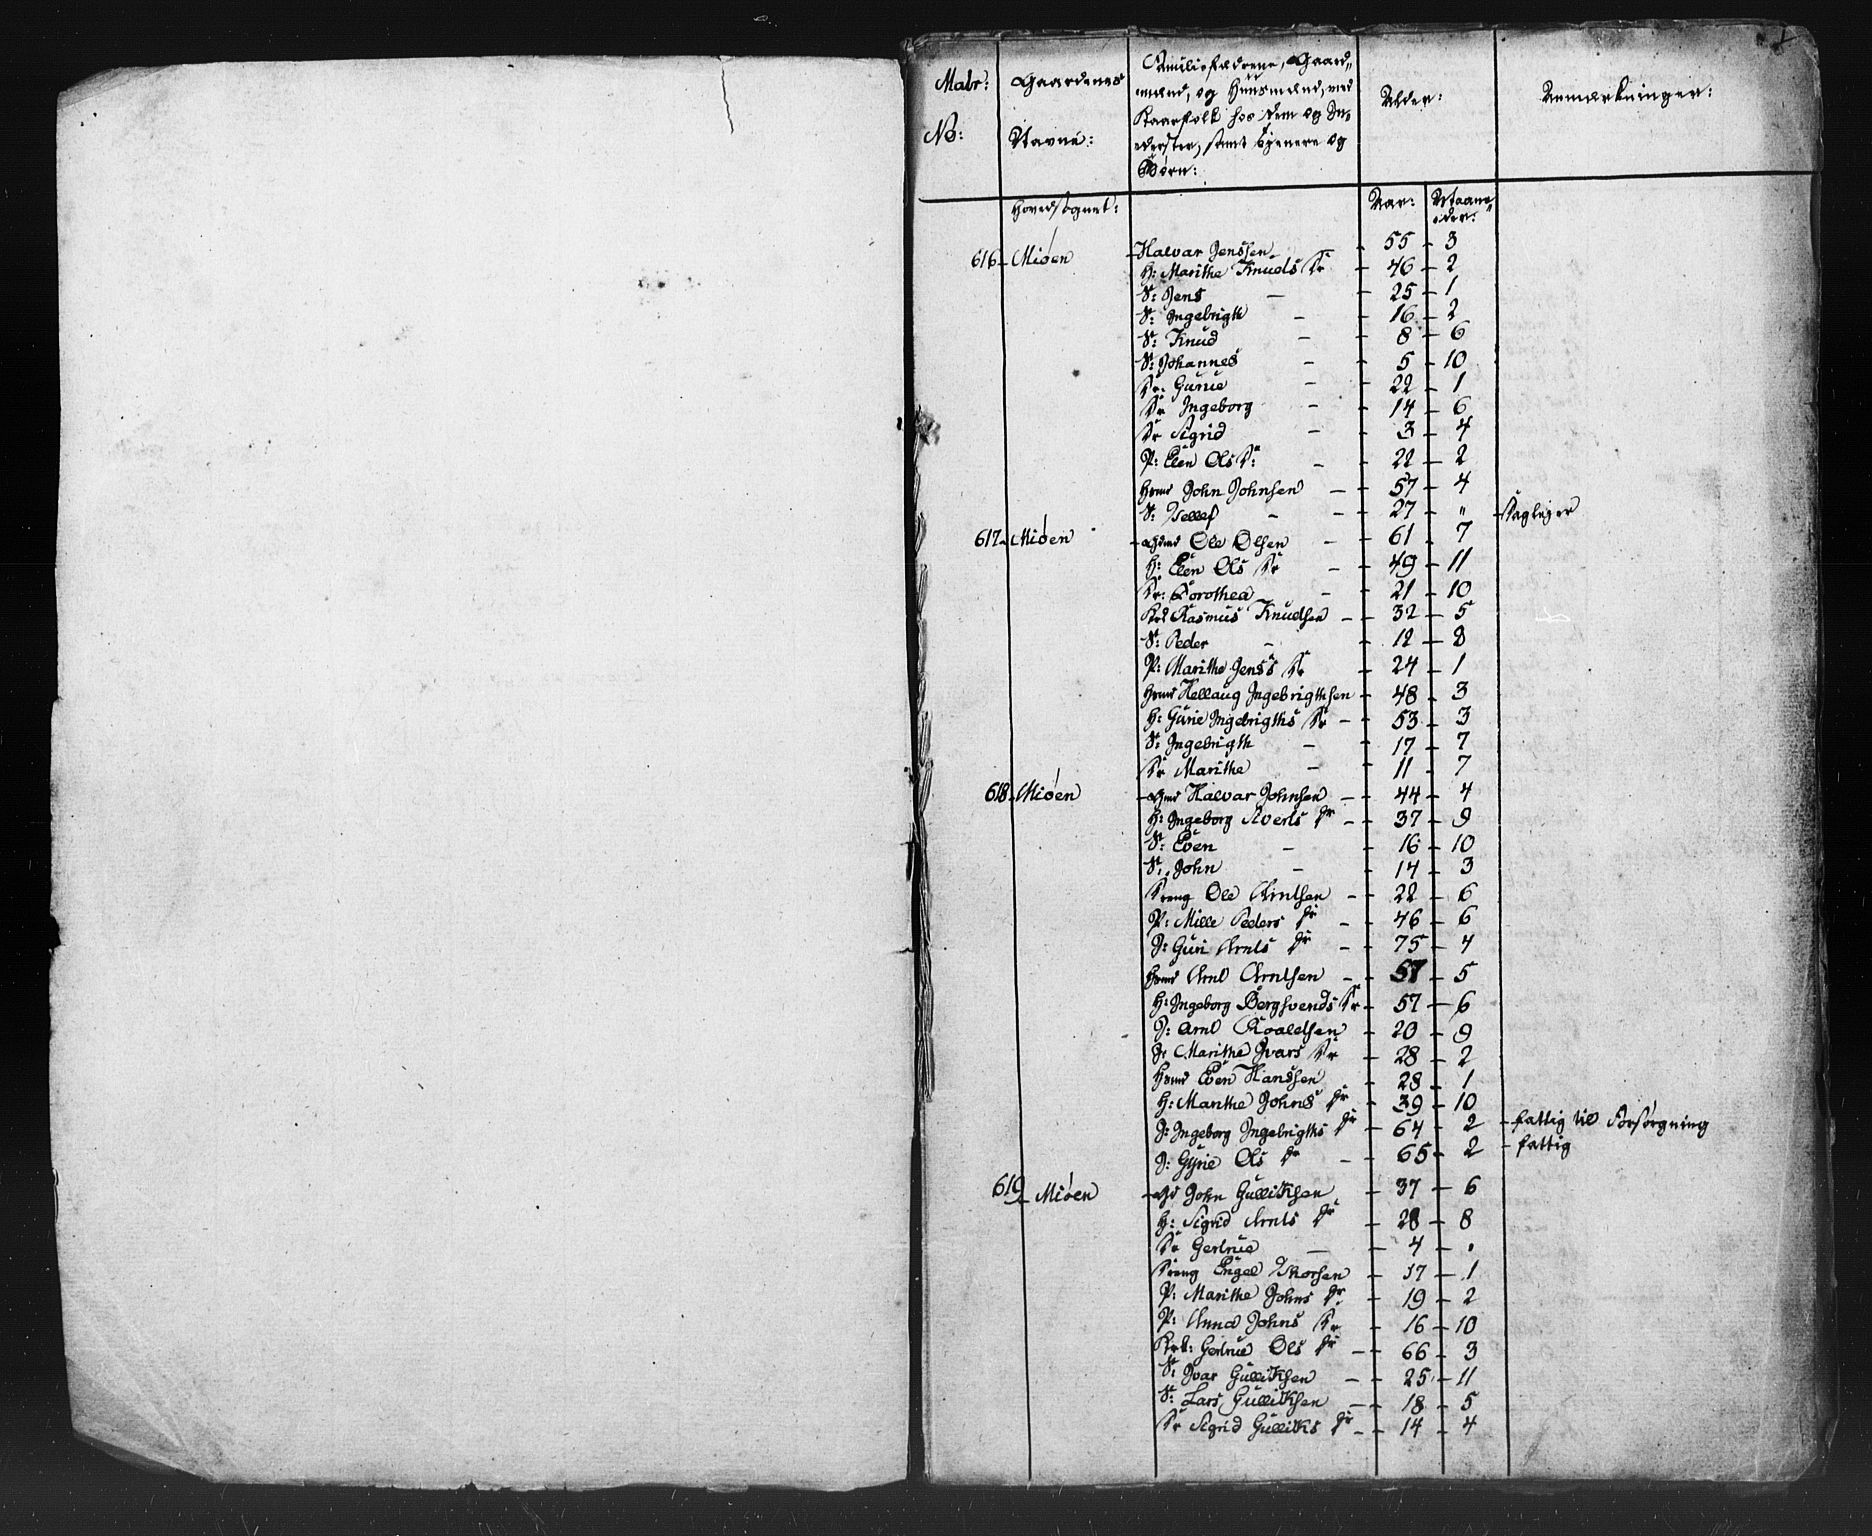 Matr: No:
Gaardenes Navne:
Familiefædrene, Gaard-
mænd, og Huusmænd, med
Kaarfolk hos dem og In-
derster, samt Tjenere og
Børn:
Alder:
Anmærkninger:
Hovedsognet: Aar: Maane-
der:
616 - Miøen - Halvar Jenssen - 55 - 3
H: Marithe Knuds Dr - 46 - 2
S: Jens - 25 - 1
S: Ingebrigth - 16 - 2
S: Knud - 8 - 6
S: Johannes - 5 - 10
Dr: Gurue - 22 - 1
Dr Ingeborg - 14 - 6
Dr Sigrid - 3 - 4
P: Elen Ols Dr: - 22 - 2
Hmd John Johnsen - 57 - 4
S: Tellef - 27 - " - Sagløjer
617 - Miøen - Gmd Ole Olsen - 61 - 7
H: Elen Ols Dr - 49 - 11
Dr: Dorothea - 21 - 10
Krd Rasmus Knudsen - 32 - 5
S: Peder - 12 - 8
P: Marithe Jens's Dr - 24 - 1
Hmd Hellaug Ingebrigthsen - 48 - 3
H: Gurie Ingebrigths Dr - 53 - 3
S: Ingebrigth - 17 - 7
Dr Marithe - 11 - 7
618 - Miøen - Gmd Halvar Johnsen - 44 - 4
H: Ingeborg Siverts Dr - 37 - 9
S: Even - 16 - 10
S: John - 14 - 3
Dreng Ole Arntsen - 22 - 6
P: Mille Peders Dr - 46 - 6
J: Guri Arnts Dr - 75 - 4
Hmd Arnt Arntsen - 57 - 5
H: Ingeborg Bergsvends Dr - 57 - 6
J: Arnt Roaldsen - 20 - 9
J: Marithe Ivars Dr - 28 - 2
Hmd Even Hanssen - 28 - 1
H: Marithe Johns Dr - 39 - 10
J: Ingeborg Ingebrigths Dr - 64 - 2 - fattig til Forsørgning
J: Gurie Ols Dr - 65 - 2 - fattig
619 - Miøen - Gd John Gullikhsen - 37 - 6
H: Sigrid Arnts Dr - 28 - 8
Dr Gertrue - 4 - .
Dreng Engel Thorsen - 17 - 1
P: Marithe Johns Dr - 19 - 2
P: Anna Johns Dr - 16 - 10
Krd: Gertrue Ols Dr - 66 - 3
S: Ivar Gullikhsen - 25 - 11
S: Lars Gullikhsen - 18 - 5
Dr Sigrid Gulliks Dr - 14 - 4